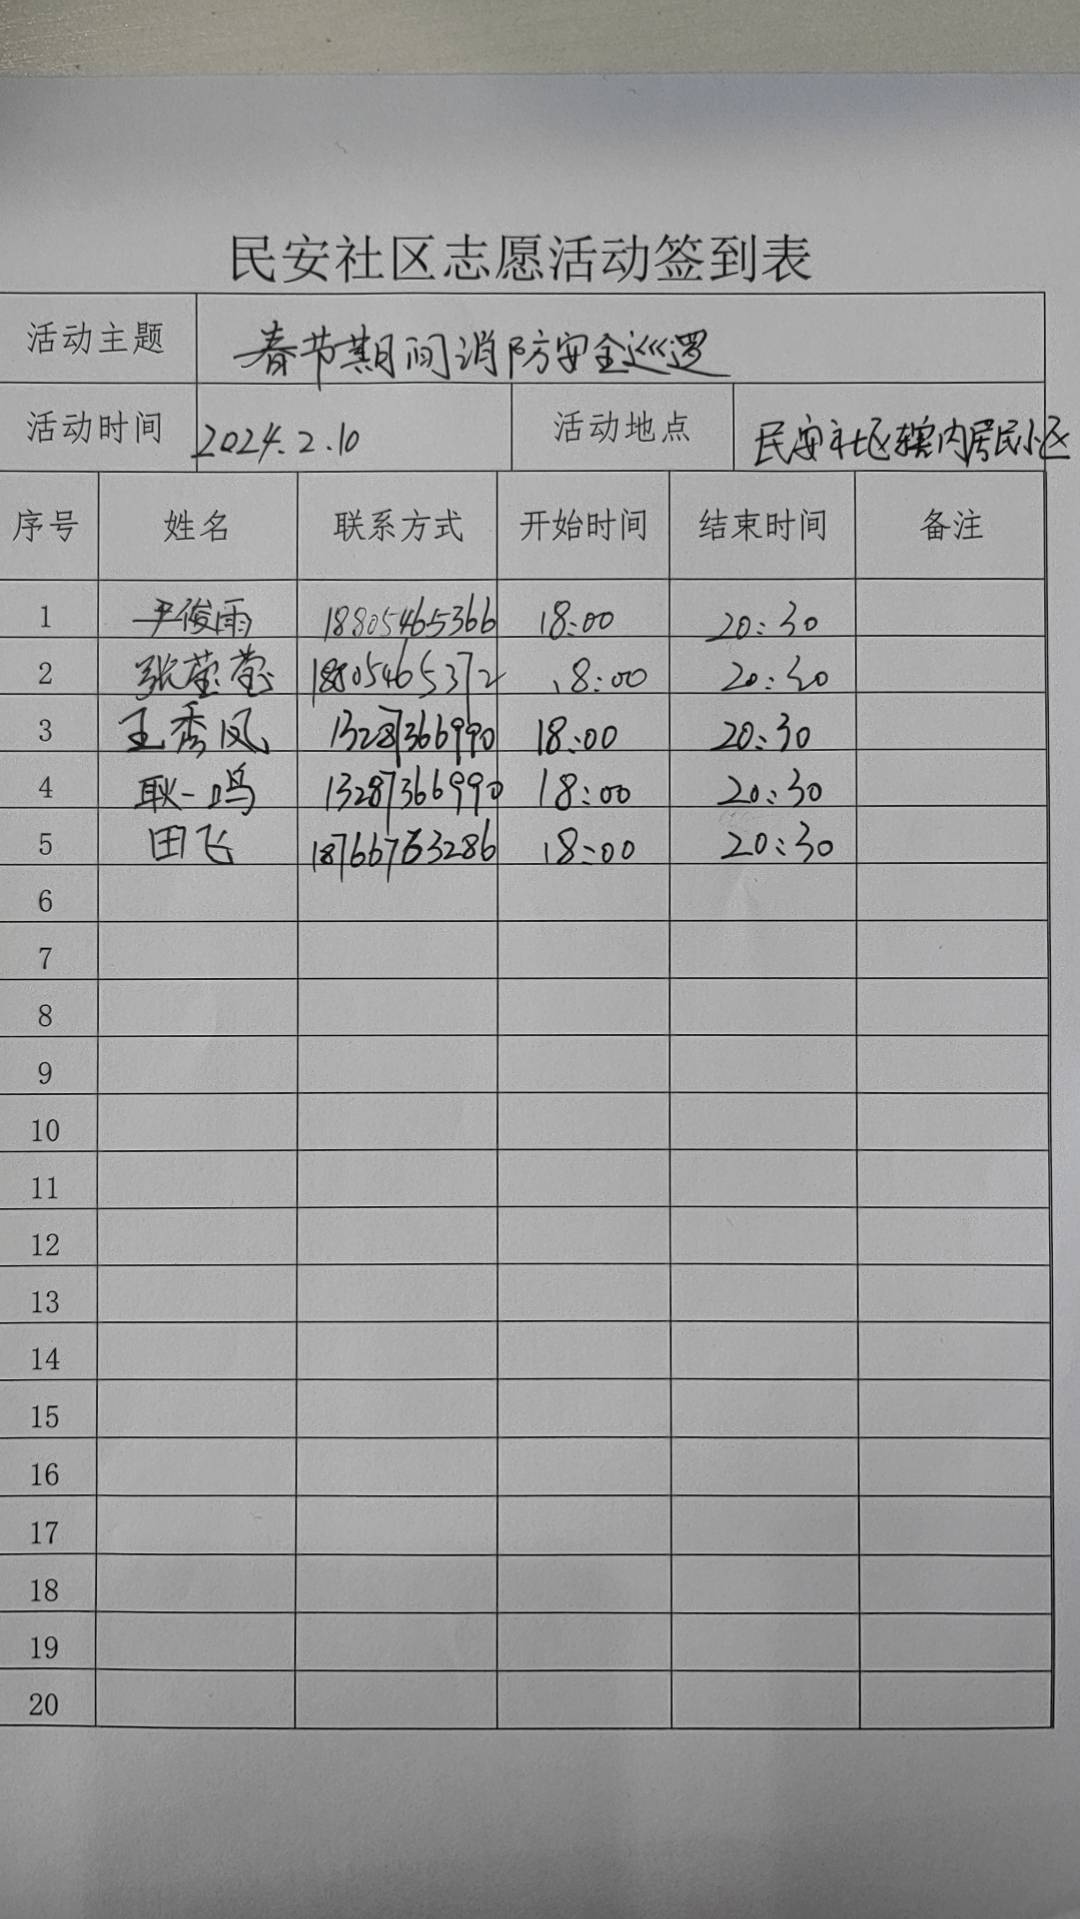 民安社区志愿活动签到表
活动主题 春节期间消防安全巡逻
活动时间 2024.2.10 活动地点 民安社区辖内居民小区
序号 姓名 联系方式 开始时间 结束时间 备注
1 尹俊雨 18805465366 18:00 20:30
2 张莹莹 18805465372 18:00 20:30
3 王秀凤 13287366990 18:00 20:30
4 耿一鸣 13287366990 18:00 20:30
5 田飞 18766763286 18:00 20:30
6
7
8
9
10
11
12
13
14
15
16
17
18
19
20